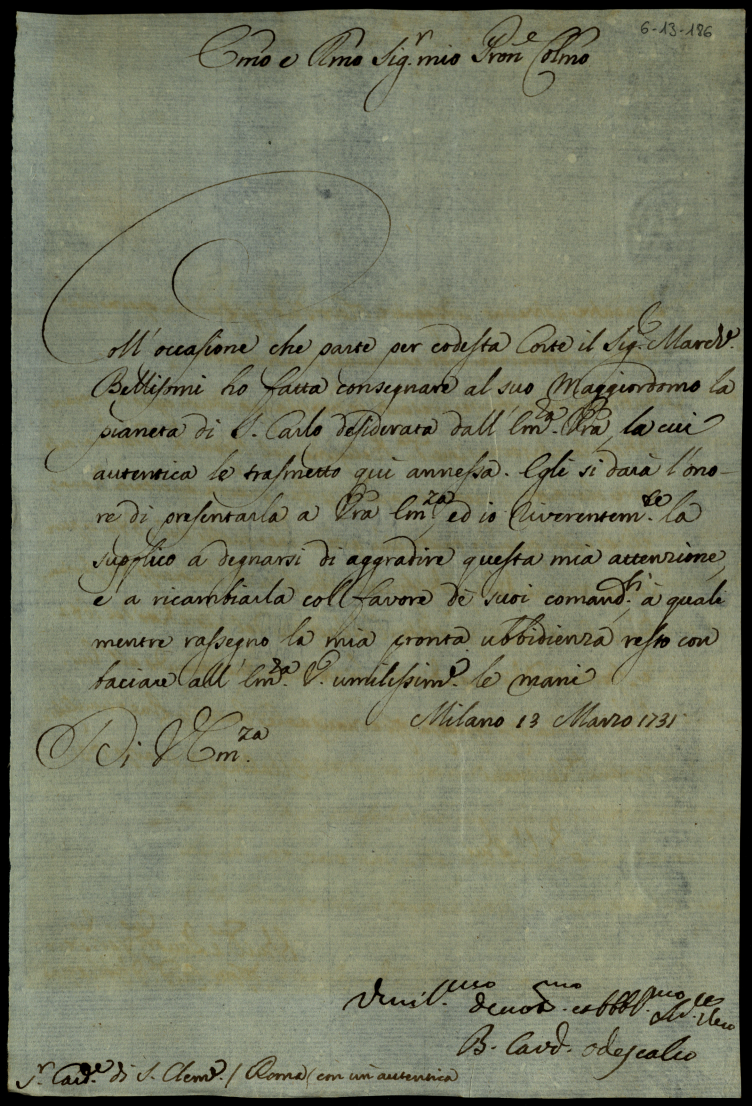 6-13-186
Emo e Rmo Sig.r mio Pron.e Colmo
Coll'occasione che parte per codesta Corte il Sig.r March.e
Bellisomi ho fatta consegnare al suo Maggiordomo la
pianeta di S. Carlo desiderata dall'Em.za Vra, la cui
autentica le trasmetto qui annessa. Egli si darà l'ono-
re di presentarla a Vra Em.za, ed io riverentem.te la
supplico a degnarsi di aggradire questa mia attenzione,
e a ricambiarla coll favore de suoi comand.ti, à quali
mentre rassegno la mia pronta ubbidienza resto con
baciare all'Em.za V. umilissim.e le mani
Milano 13 Marzo 1731
Di V Em.za
Vmil.mo deuot.mo et obbl.mo
B. Card. Odescalco
S.r Card.e di S. Clem.e / Roma / con un autentica